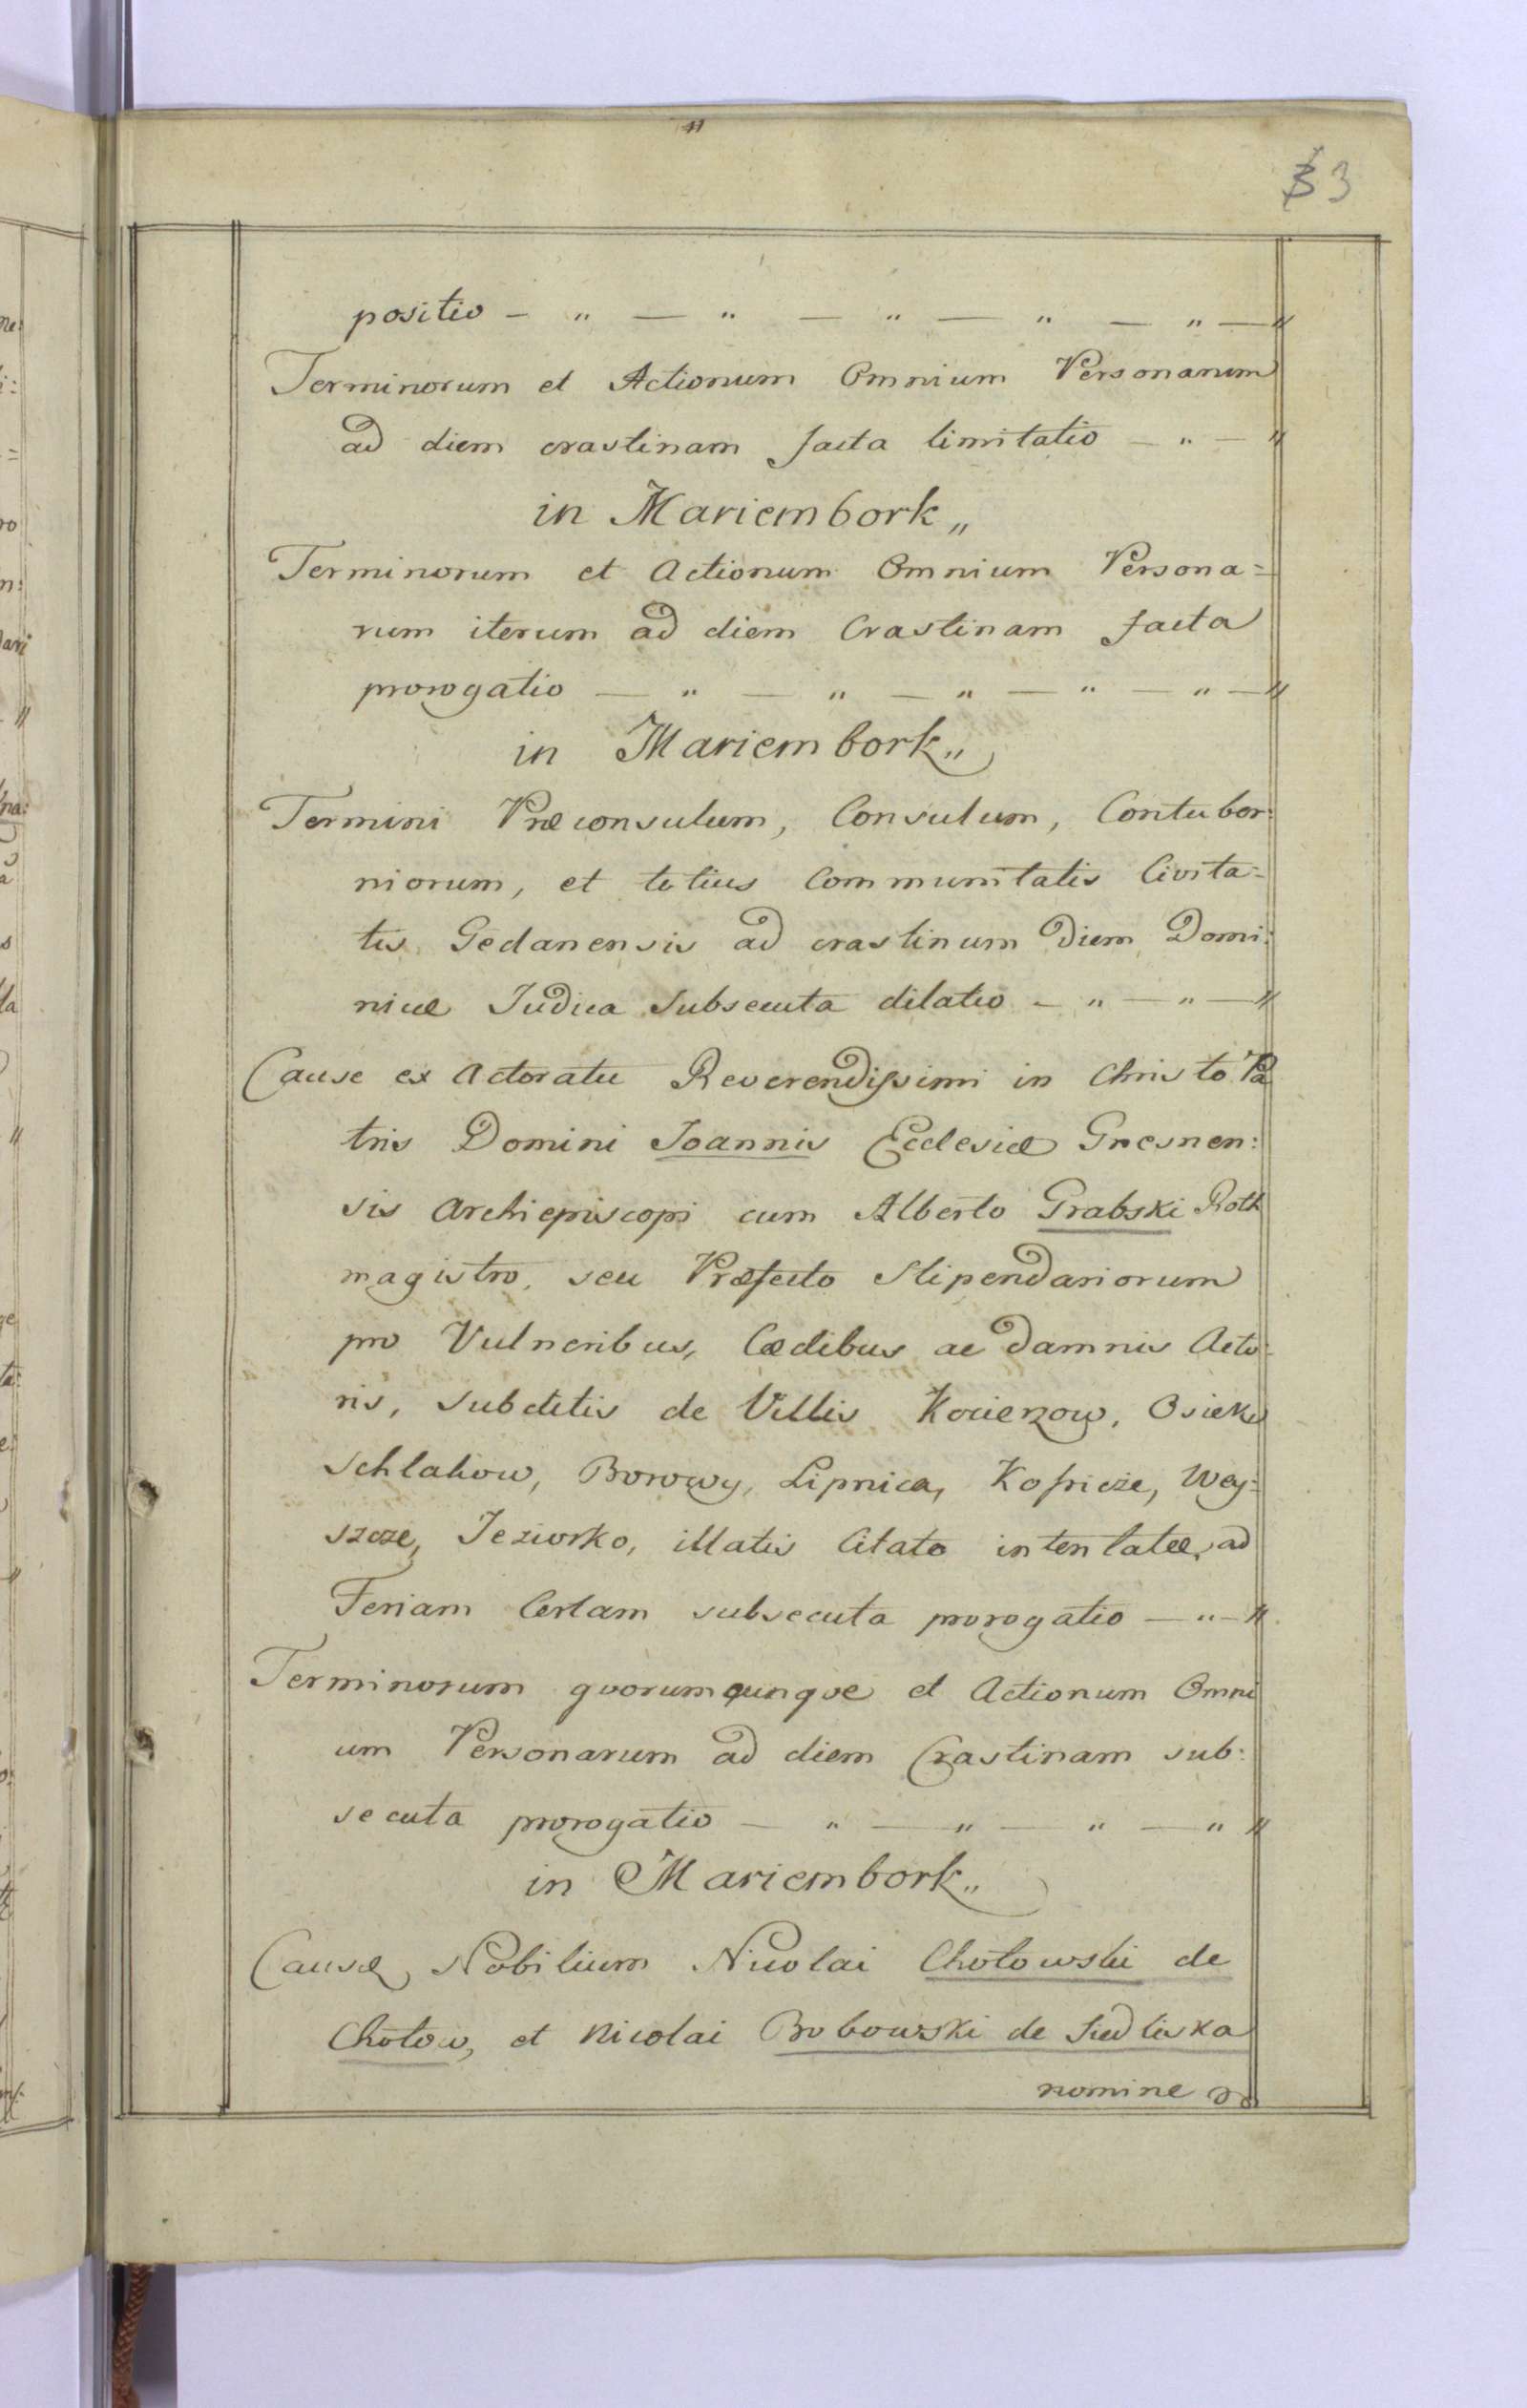 3 3
positio — " — " — " — " — " — "
Terminorum et Actionum Omnium Personarum
ad diem crastinam facta limitatio — " — "
in Mariembork„
Terminorum et Actionum Omnium Persona=
rum iterum ad diem Crastinam facta
prorogatio — " — " — " — " — " — "
in Mariembork„
Termini Præconsulum, Consulum, Contuber:
niorum, et totius Communitatis Civita=
tis Gedanensis ad crastinum Diem Domi:
nicæ Judica Subsecuta dilatio — " — " — "
Cause ex Actoratu Reverendissimi in Christo Pa
tris Domini Joannis Ecclesiæ Gnesnen:
sis Archiepiscopi cum Alberto Grabski Roth
magistro, seu Præfecto Stipendariorum
pro Vulneribus, Cædibus ac Damnis Acto=
ris, Subditis de Villis Kocierzow, Osiek
Schlakow, Borowy, Lipnica, Wey=
szcze, Jeziorko, illatis Citato intentatæ, ad
Feriam Certam subsecuta prorogatio — " — "
Terminorum quorumcunque et Actionum Omni
um Personarum ad diem Crastinam sub:
secuta prorogatio — " — " — " — " "
in Mariembork„
Causæ Nobilium Nicolai Chotowski de
Chotow, et Nicolai Bobowski de Siedliska
nomine